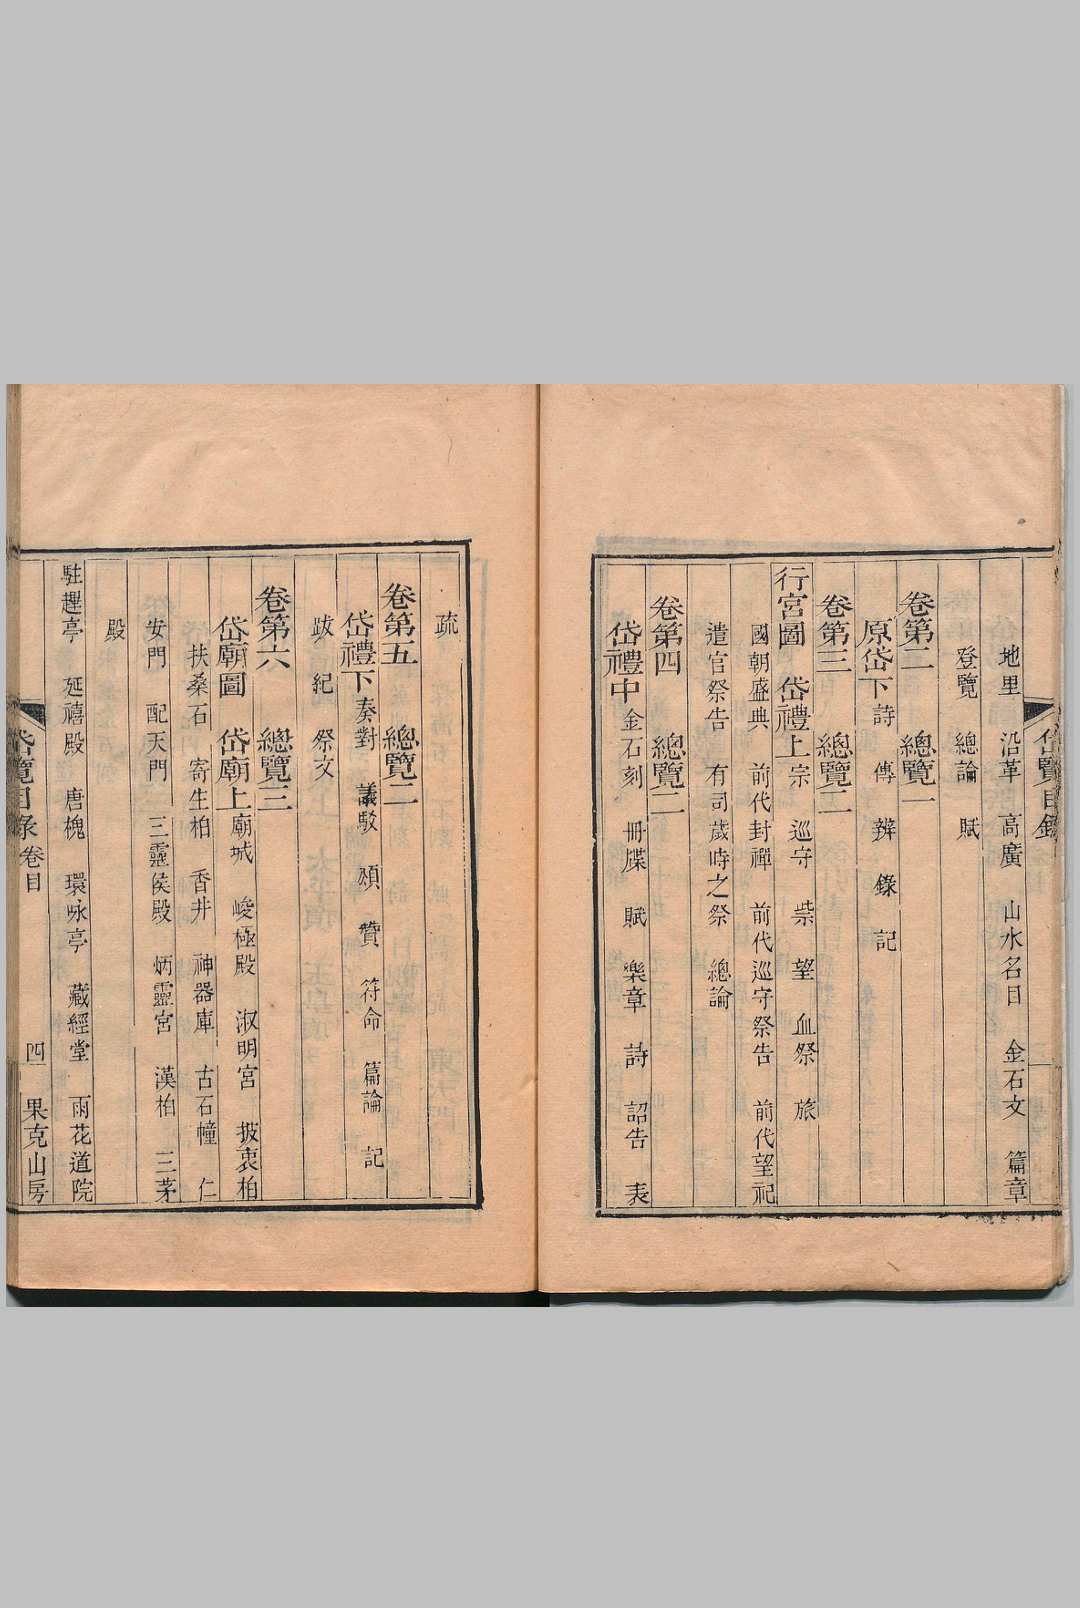 岱覽目錄
地里　沿革　高廣　山水名目　金石文　篇章
登覽　總論　賦
卷第二　　總覽一
原岱下詩　傳　辨　錄　記
卷第三　　總覽二
行宮圖　岱禮上宗　巡守　祡　望　血祭　旅
國朝盛典　前代封禪　前代巡守祭告　前代望祀
遣官祭告　有司歲時之祭　總論
卷第四　　總覽二
岱禮中金石刻　冊牒　賦　樂章　詩　詔告　表
疏
卷第五　　總覽二
岱禮下奏對　議駁　頌　贊　符命　篇論　記
跋　紀　祭文
卷第六　　總覽三
岱廟圖　岱廟上廟城　峻極殿　淑明宮　披衷柏
扶桑石　寄生柏　香井　神器庫　古石幢　仁
安門　配天門　三靈侯殿　炳靈宮　漢柏　三茅
殿
駐蹕亭　延禧殿　唐槐　環咏亭　藏經堂　雨花道院
岱覽目錄　卷目　四　果克山房